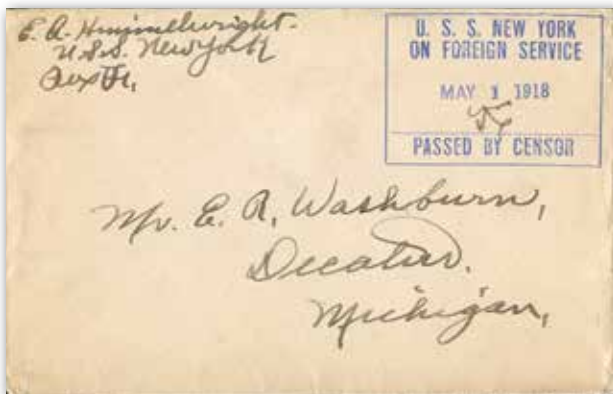 E. A. Himmelwright.
U.S.S. New York
U. S. S. NEW YORK
ON FOREIGN SERVICE
MAY 1 1918
PASSED BY CENSOR
Mr. E. R. Washburn,
Decatur.
Michigan,